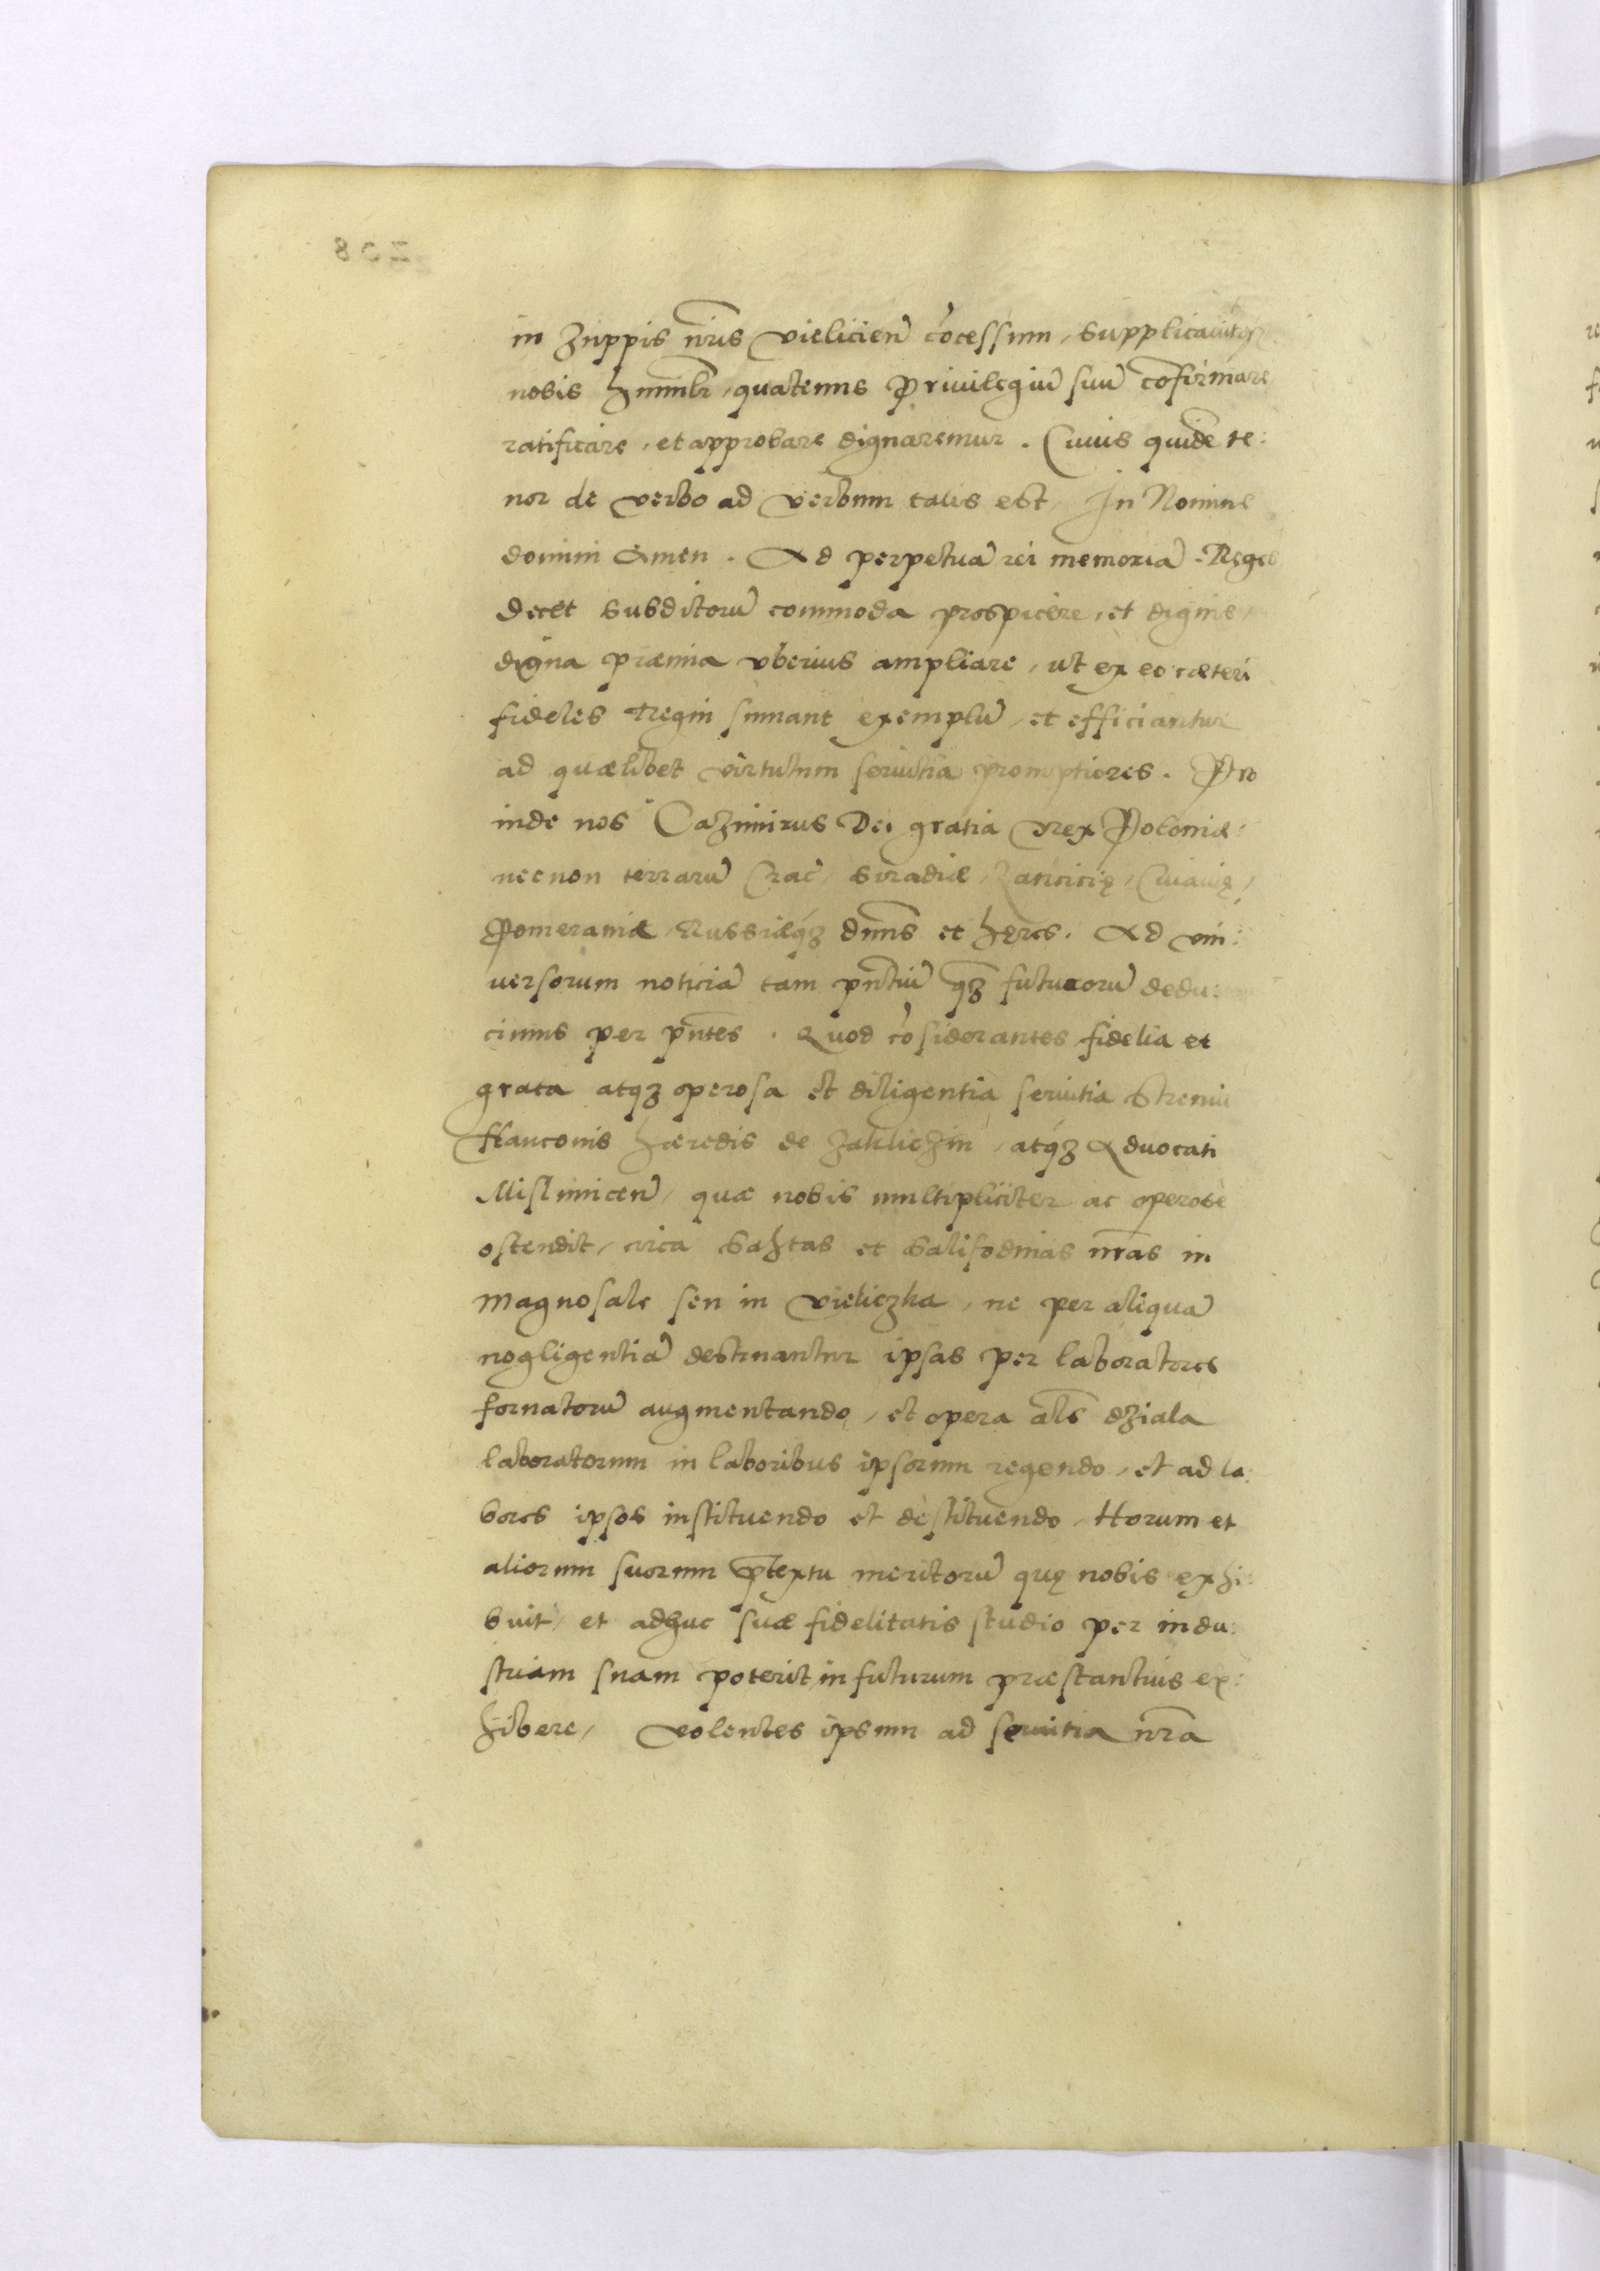 in Zuppis nr̃is Vielicien̄ cõcessum, supplicauitqȝ
nobis humilr̃, quatenus Priuilegiũ suũ cõfirmare
ratificare, et approbare dignaremur. Cuius quidẽ te:
nor de verbo ad verbum talis est, In Nomine
domini Amen. Ad perpetuã rei memoriã. Reges
decet subditorũ commoda prospicere, et dignis,
digna præmia vberius ampliare, ut ex eo cæteri
fideles Regni sumant exemplũ, et efficiantur
ad quælibet virtutum seruitia promptiores. Pro
inde nos Cazimirus Dei gratia Rex Poloniæ:
necnon terrarũ Crac̃, Siradiæ, Lancicię, Cuiauię,
Pomeraniæ, Russiæqȝ dnũs et hęres. Ad vni:
uersorum noticiã tam pñtiũ qȝ futurorũ dedu:
cimus per pñtes. Quod cõsiderantes fidelia et
grata atqȝ operosa et diligentia seruitia Strenui
Hanconis hæredis de Zakliczin, atqȝ Aduocati
Mislimicen̄, quæ nobis multipliciter ac operose
ostendit, circa Sahtas et Salifodinas nr̃as in
Magnosale seu in Vieliczka, ne per aliquã
negligentiã destruantur ipsas per laboratores
fornatorũ augmentando, et opera al̃s dziala
laboratorum in laboribus ipsorum regendo, et ad la:
bores ipsos instituendo et destituendo, Horum et
aliorum suorum p̃textu meritorũ quę nobis exhi:
buit, et adhuc suæ fidelitatis studio per indu:
striam suam poterit in futurum præstantius ex:
hibere, Volentes ipsum ad seruitia nr̃a